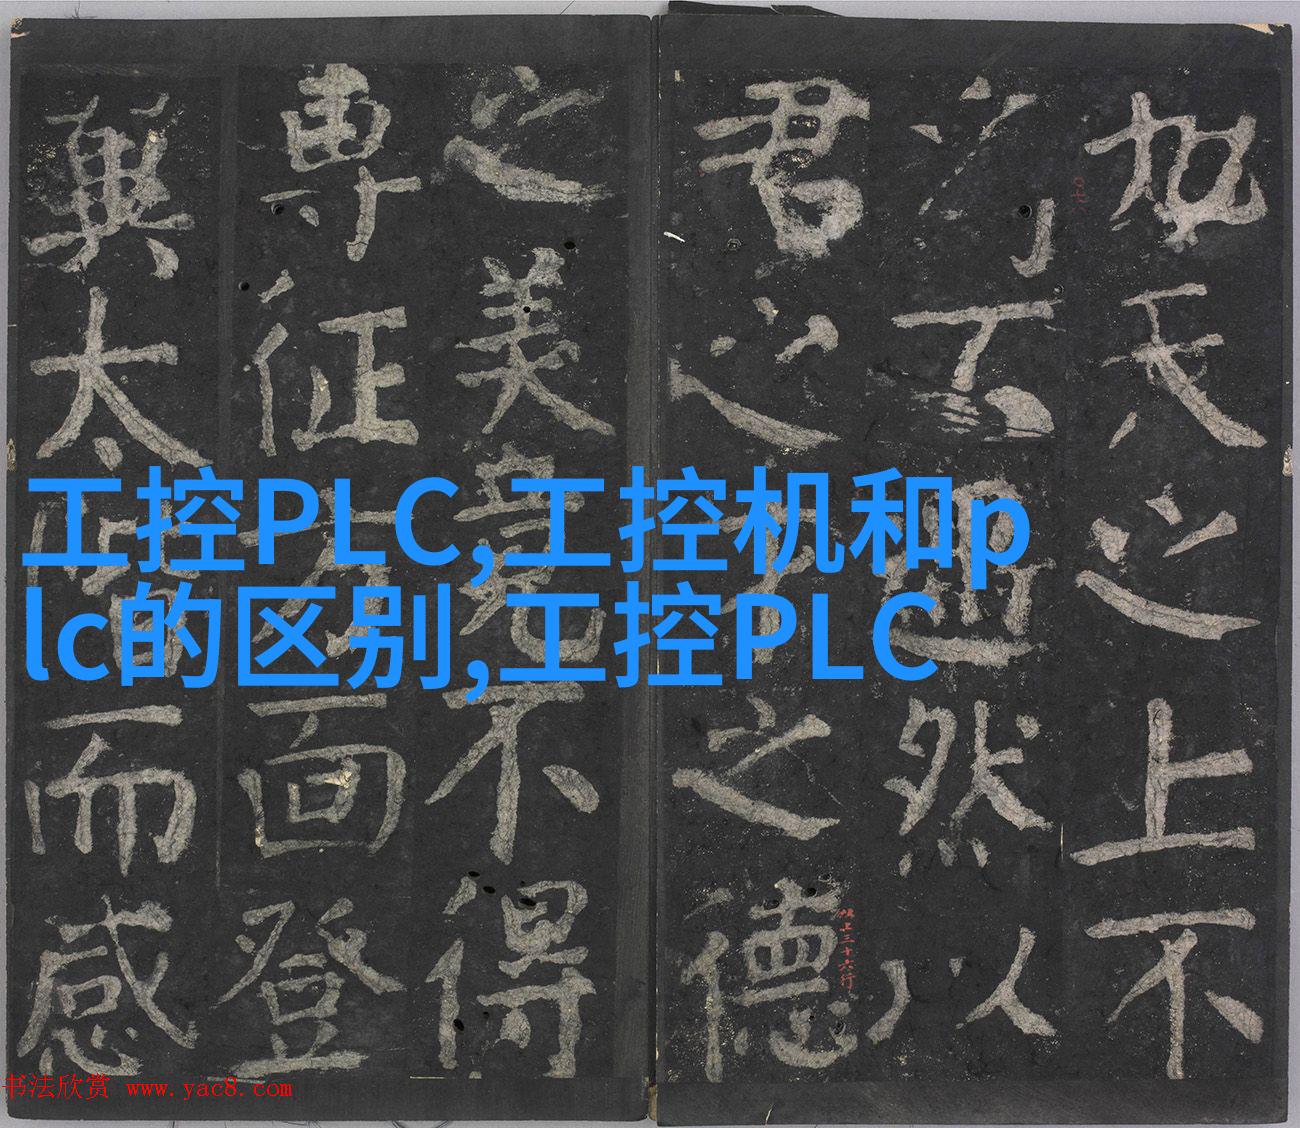 工控PLC,工控机和p
lc的区别,工控PLC
加之上不
然以
君之之德
之美竟不得
專征方面登
冀太階而感
上三十六行
书法欣赏 www.yac8.com